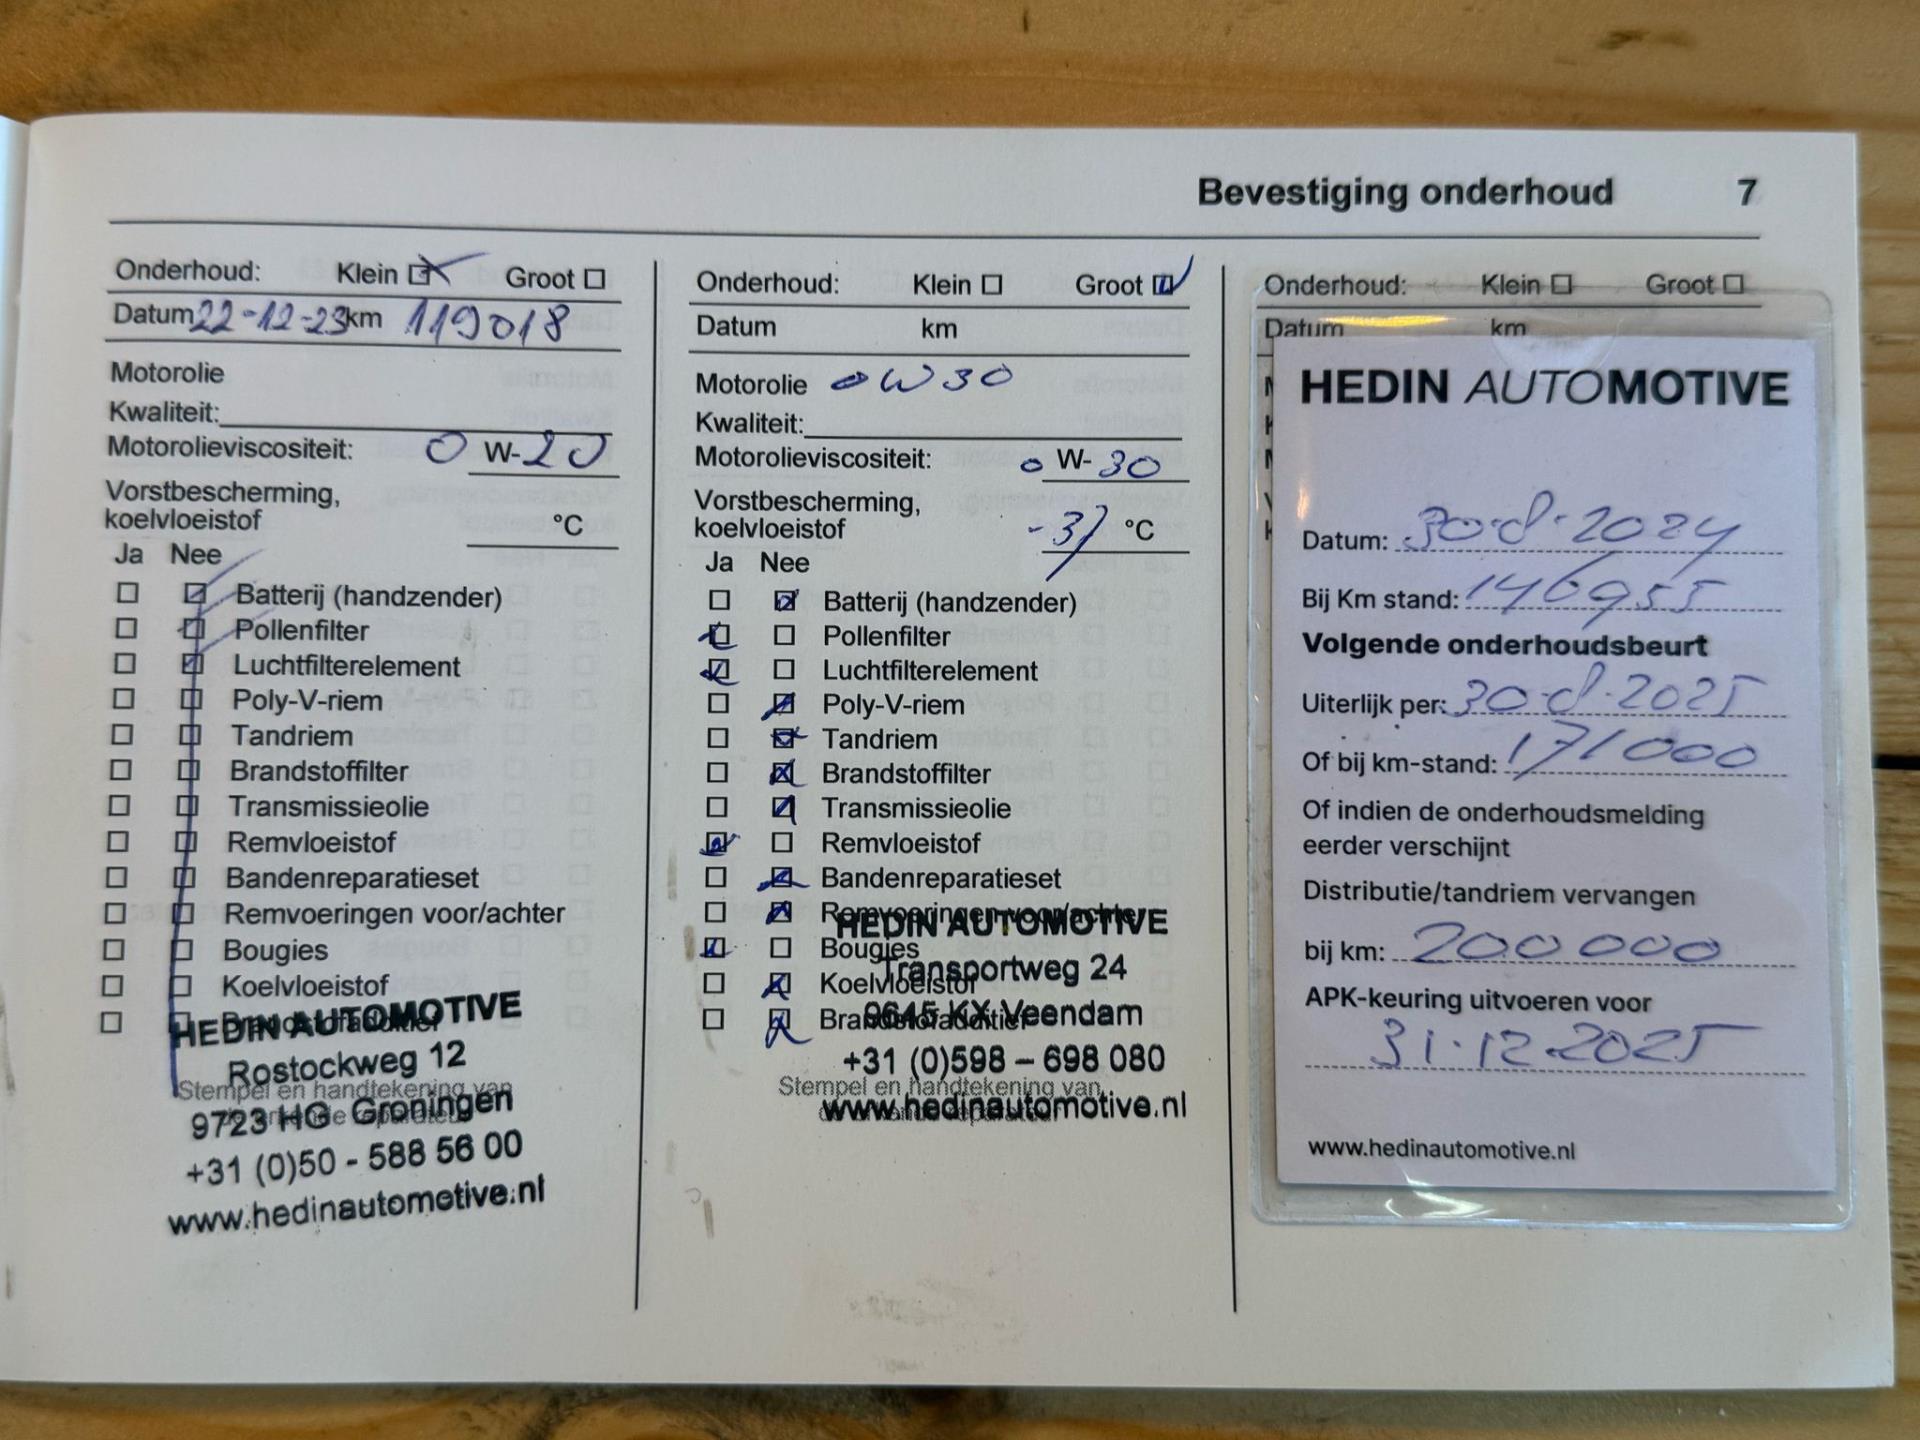 Bevestiging onderhoud 7
Onderhoud: Klein Groot
Datum 22-12-23 km 119018
Motorolie
Kwaliteit:
Motorolieviscositeit: 0 W-20
Vorstbescherming,
koelvloeistof °C
Ja Nee
Batterij (handzender)
Pollenfilter
Luchtfilterelement
Poly-V-riem
Tandriem
Brandstoffilter
Transmissieolie
Remvloeistof
Bandenreparatieset
Remvoeringen voor/achter
Bougies
Koelvloeistof
Brandstofadditief
HEDIN AUTOMOTIVE
Rostockweg 12
Stempel en handtekening van
9723 HG Groningen
+31 (0)50 - 588 56 00
www.hedinautomotive.nl
Onderhoud: Klein Groot
Datum km
Motorolie 0W30
Kwaliteit:
Motorolieviscositeit: 0 W-30
Vorstbescherming,
koelvloeistof -37 °C
Ja Nee
Batterij (handzender)
Pollenfilter
Luchtfilterelement
Poly-V-riem
Tandriem
Brandstoffilter
Transmissieolie
Remvloeistof
Bandenreparatieset
Remvoeringen voor/achter
HEDIN AUTOMOTIVE
Bougies
Transportweg 24
Koelvloeistof
Brandstofadditief
9645 KX Veendam
+31 (0)598 – 698 080
Stempel en handtekening van
www.hedinautomotive.nl
Onderhoud: Klein Groot
Datum km
HEDIN AUTOMOTIVE
Datum: 30-8-2024
Bij Km stand: 146955
Volgende onderhoudsbeurt
Uiterlijk per: 30-8-2025
Of bij km-stand: 171000
Of indien de onderhoudsmelding
eerder verschijnt
Distributie/tandriem vervangen
bij km: 200000
APK-keuring uitvoeren voor
31-12-2025
www.hedinautomotive.nl